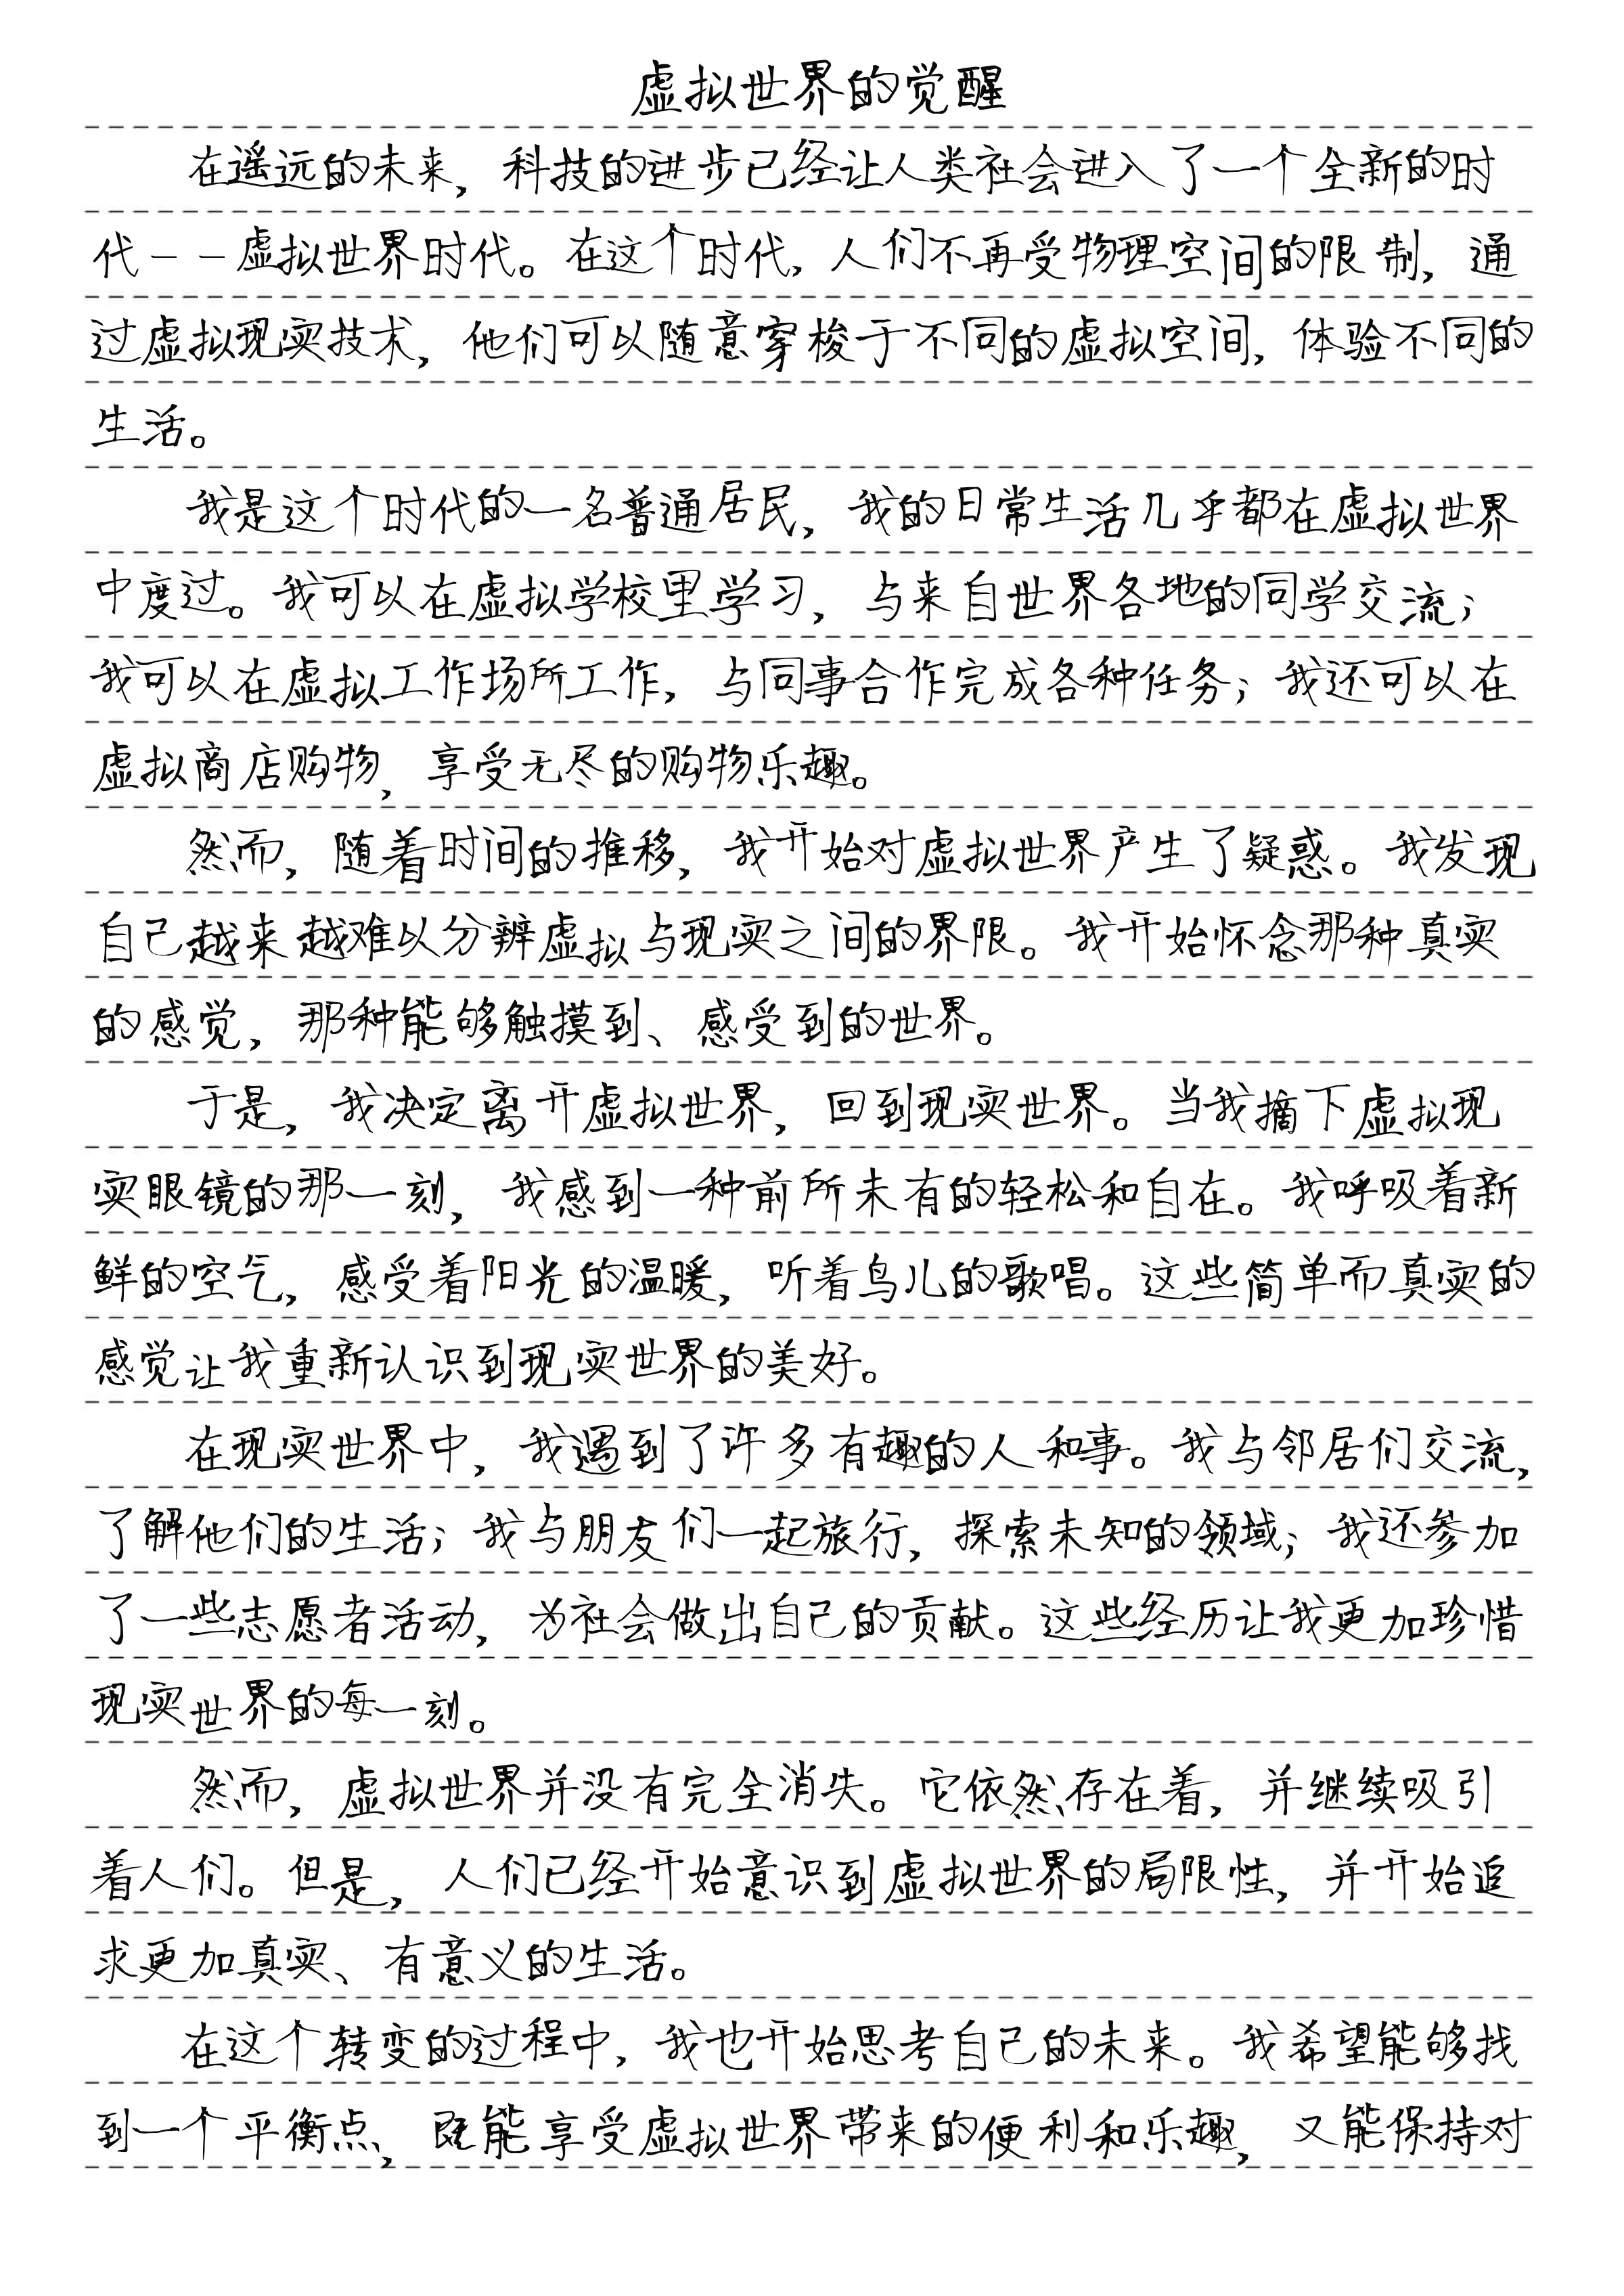 虚拟世界的觉醒
在遥远的未来，科技的进步已经让人类社会进入了一个全新的时
代--虚拟世界时代。在这个时代，人们不再受物理空间的限制，通
过虚拟现实技术，他们可以随意穿梭于不同的虚拟空间，体验不同的
生活。
我是这个时代的一名普通居民，我的日常生活几乎都在虚拟世界
中度过。我可以在虚拟学校里学习，与来自世界各地的同学交流；
我可以在虚拟工作场所工作，与同事合作完成各种任务；我还可以在
虚拟商店购物，享受无尽的购物乐趣。
然而，随着时间的推移，我开始对虚拟世界产生了疑惑。我发现
自己越来越难以分辨虚拟与现实之间的界限。我开始怀念那种真实
的感觉，那种能够触摸到、感受到的世界。
于是，我决定离开虚拟世界，回到现实世界。当我摘下虚拟现
实眼镜的那一刻，我感到一种前所未有的轻松和自在。我呼吸着新
鲜的空气，感受着阳光的温暖，听着鸟儿的歌唱。这些简单而真实的
感觉让我重新认识到现实世界的美好。
在现实世界中，我遇到了许多有趣的人和事。我与邻居们交流，
了解他们的生活；我与朋友们一起旅行，探索未知的领域；我还参加
了一些志愿者活动，为社会做出自己的贡献。这些经历让我更加珍惜
现实世界的每一刻。
然而，虚拟世界并没有完全消失。它依然存在着，并继续吸引
着人们。但是，人们已经开始意识到虚拟世界的局限性，并开始追
求更加真实、有意义的生活。
在这个转变的过程中，我也开始思考自己的未来。我希望能够找
到一个平衡点，既能享受虚拟世界带来的便利和乐趣，又能保持对